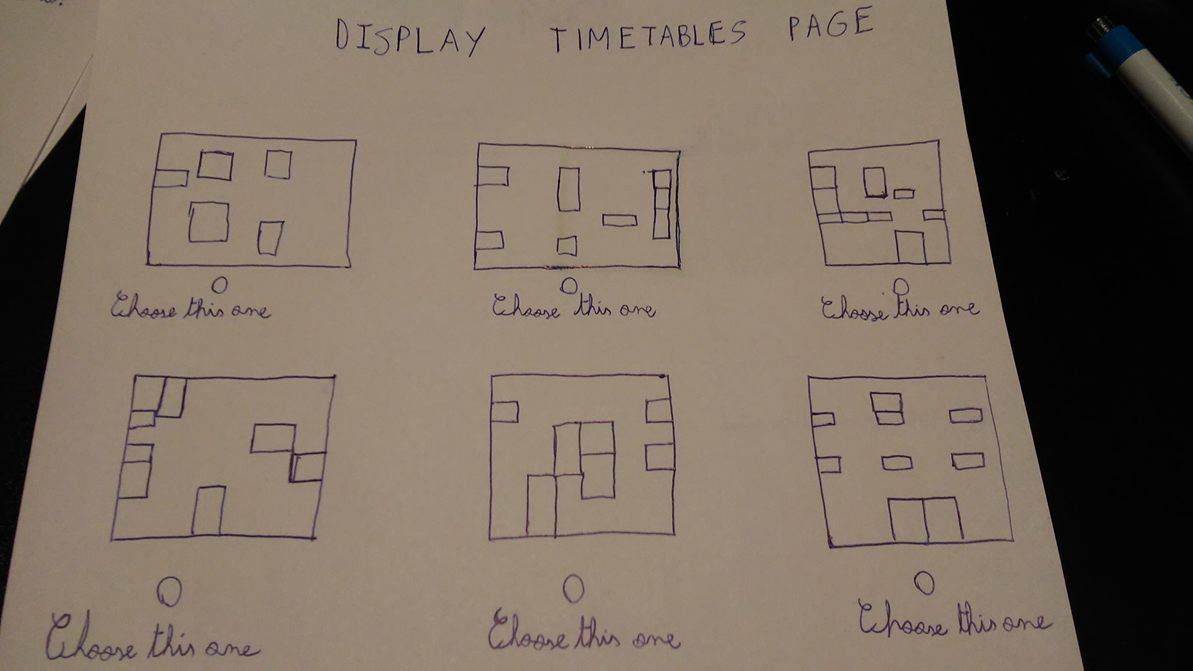 DISPLAY TIMETABLES PAGE
Choose this one
Choose this one
Choose this one
Choose this one
Choose this one
Choose this one